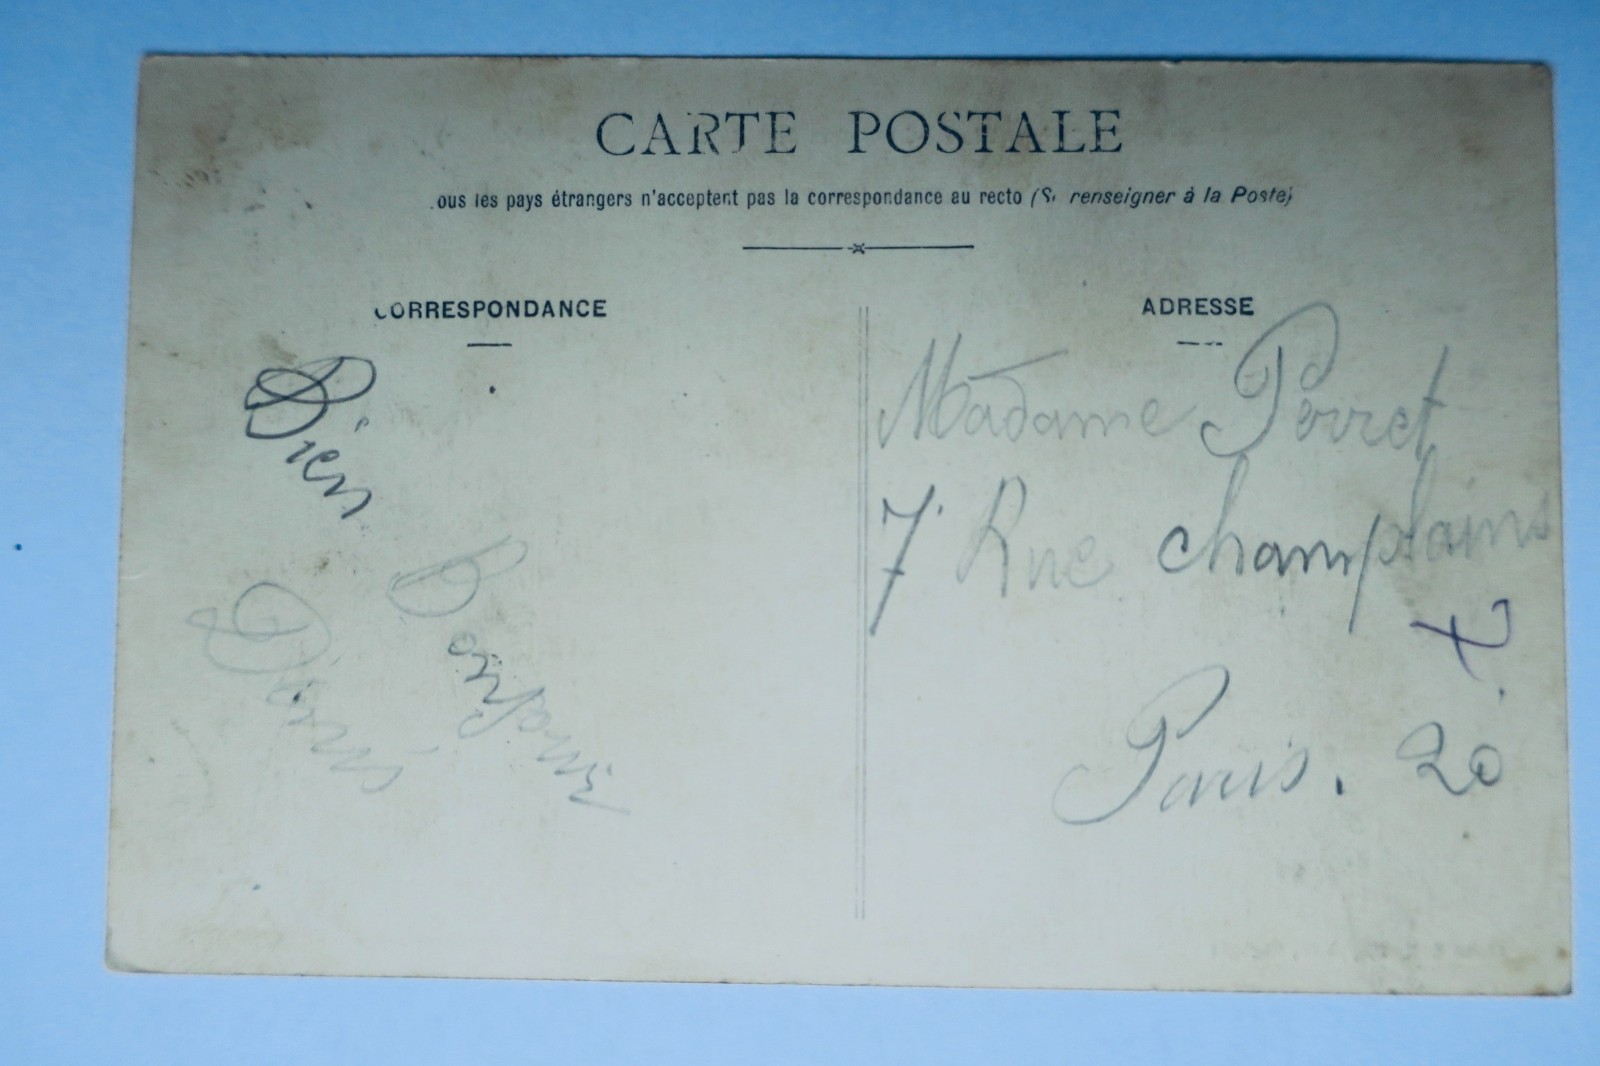 CARTE POSTALE
ous les pays étrangers n'acceptent pas la correspondance au recto (S. renseigner à la Poste)
CORRESPONDANCE
Bien
Denis
ADRESSE
Madame Perret
7 Rue champlains
Paris. 20